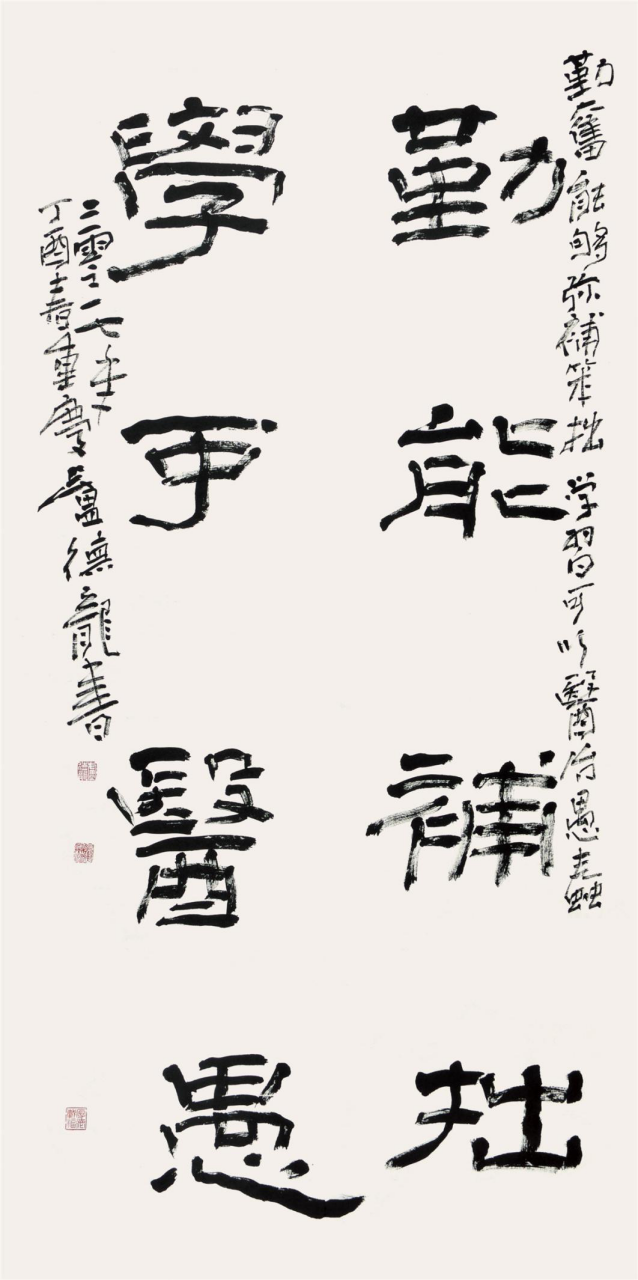 勤奮能够弥補笨拙 学習可以醫治愚蠢
勤能補拙
學可醫愚
二零一七年
丁酉春重慶盧德龍書